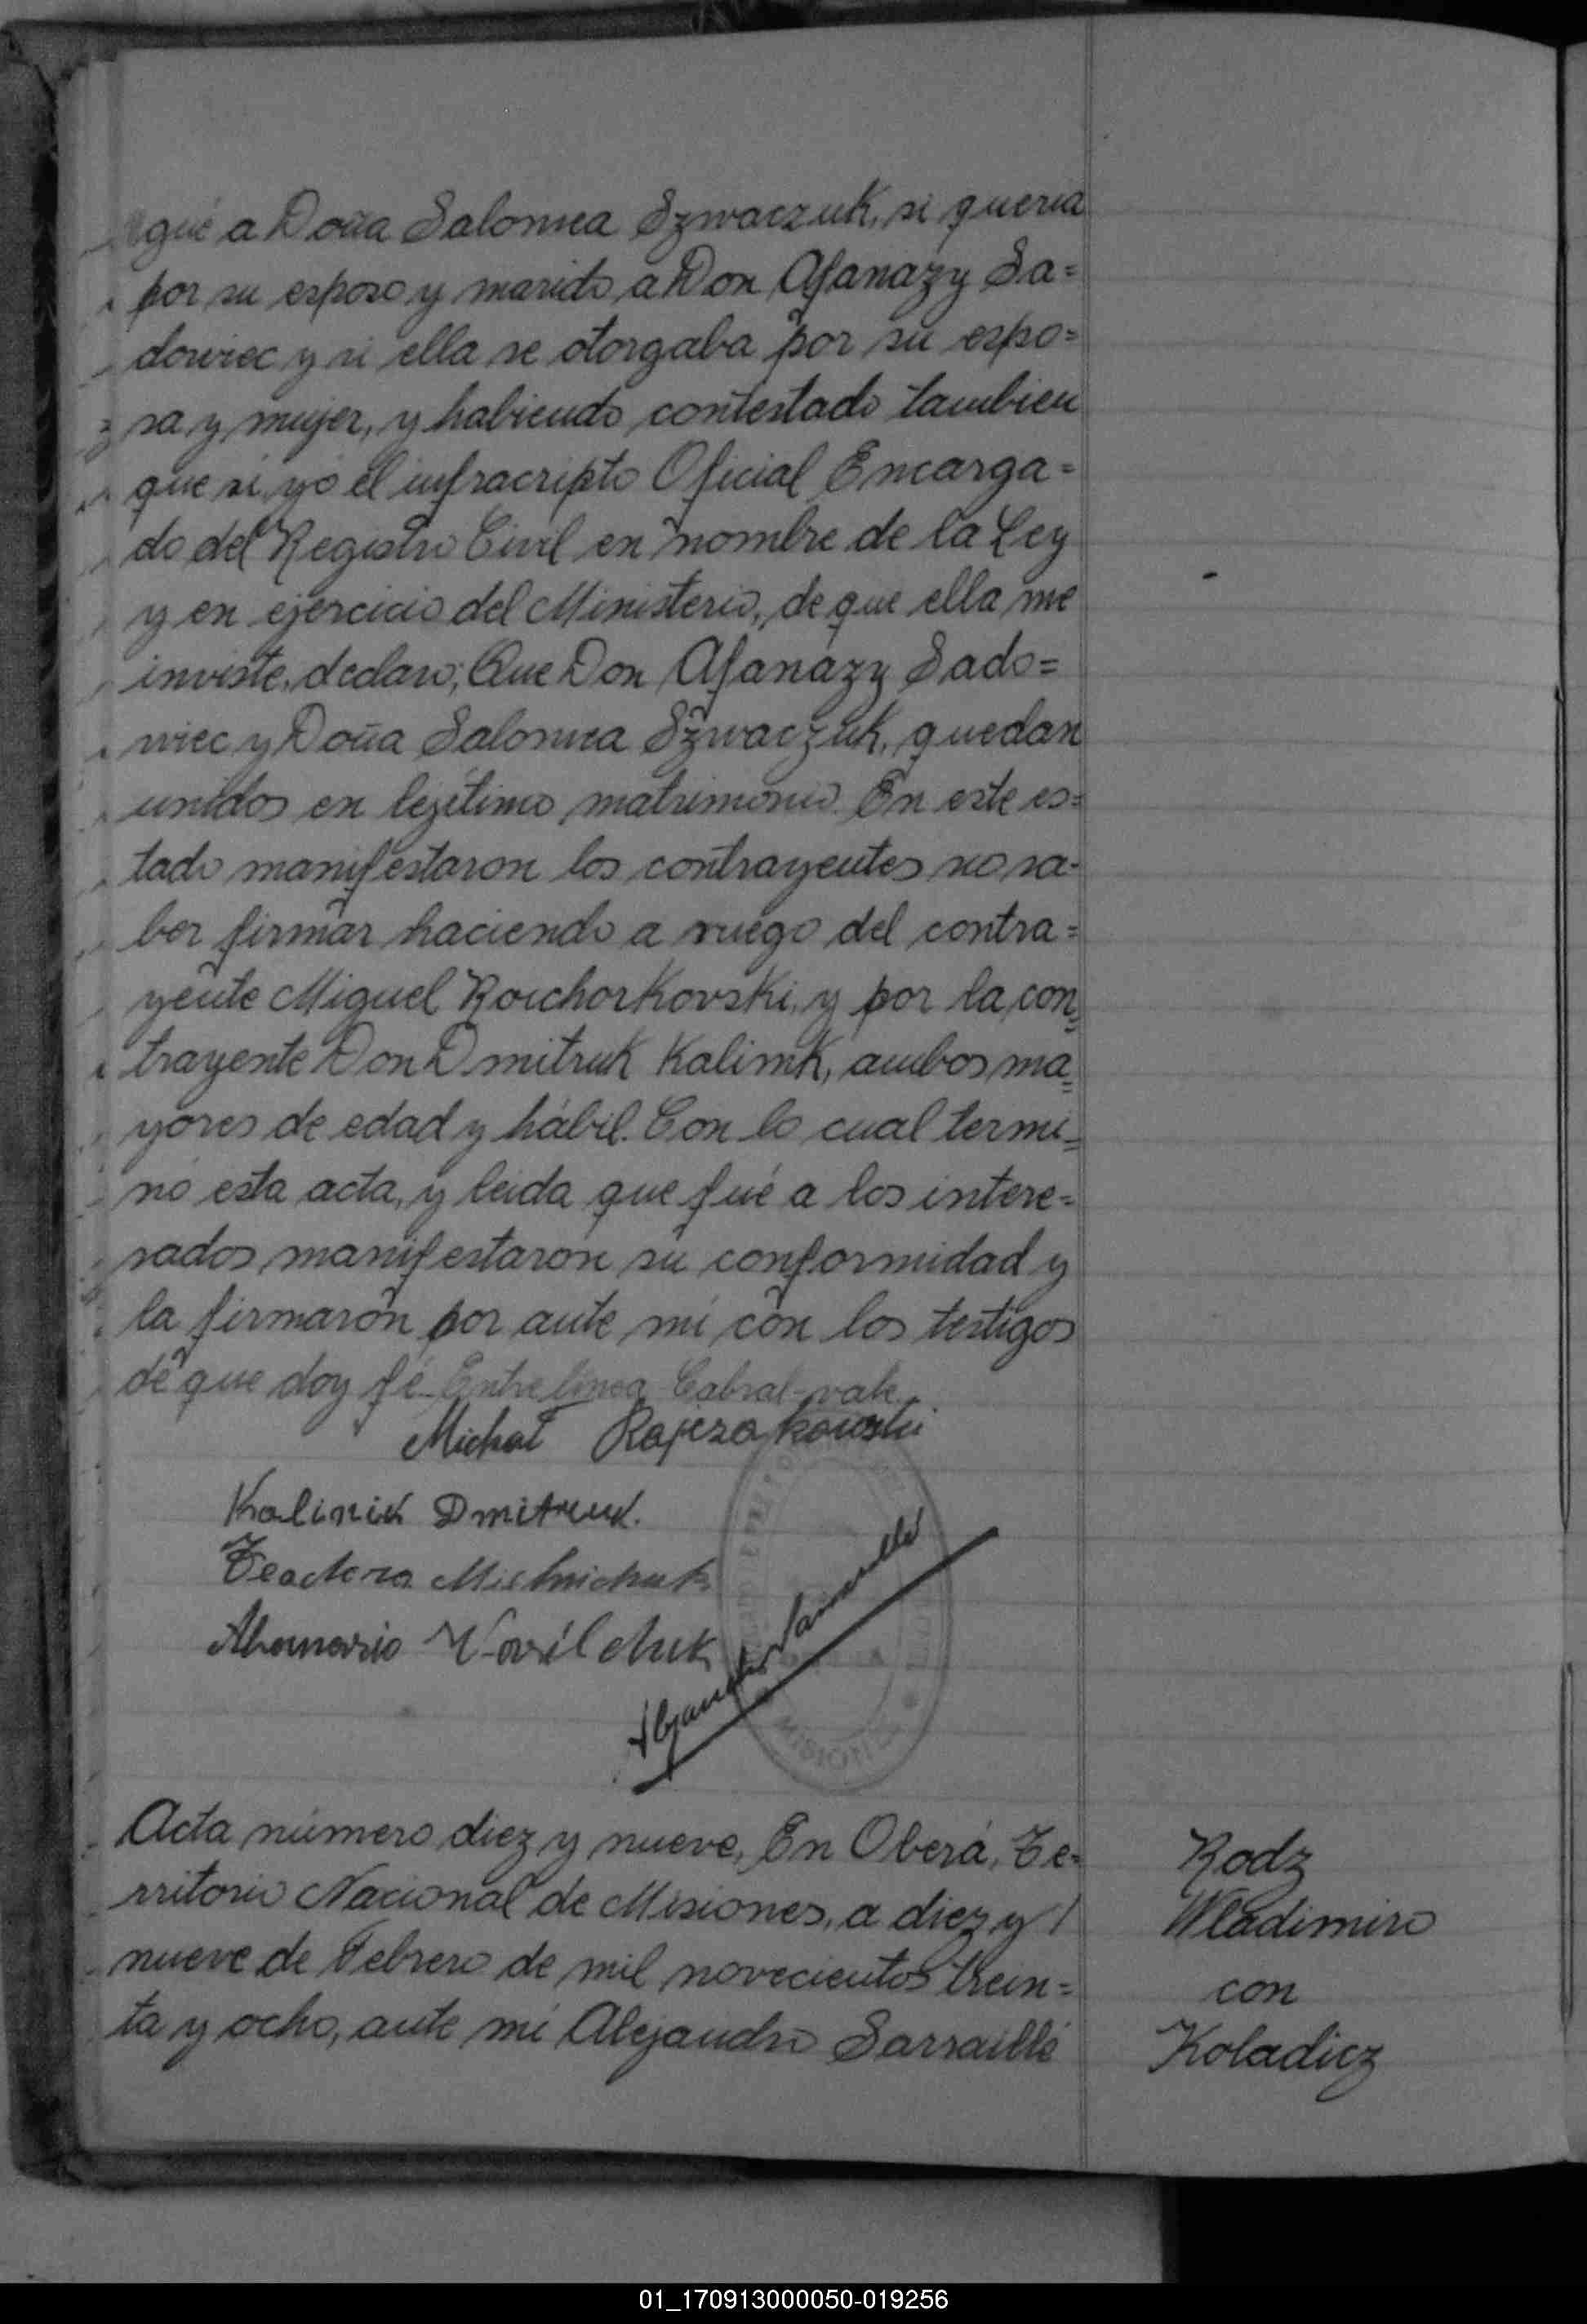 gué a Doña Salomea Szwaczuk, si queria
por su esposo y marido a Don Afanazy Sa=
dowiec y si ella se otorgaba por su espo=
sa y mujer, y habiendo contestado tambien
que si, yó el infracripto Oficial Encarga=
do del Registro Civil en nombre de la Ley
y en ejercicio del Ministerio, de que ella me
inviste, declaro; Que Don Afanazy Sado=
wiec y Doña Salomea Szwaczuk, quedan
unidos en lejítimo matrimonio. En este es=
tado manifestaron los contrayentes no sa-
ber firmar haciendo a ruego del contra=
yente Miguel Roichorkovski, y por la con=
trayente Don Dmitruk Kalimk, ambos ma=
yores de edad y hábil. Con lo cual termi=
nó esta acta, y leida que fué a los intere=
sados manifestaron su conformidad y
la firmaron por ante mi con los testigos
de que doy fé. Entre linea Cabral-vale.
Michał Rajczakowski
Kalinik Dmitruk.
Teodoro Mielnichuk
Alejandro Sarraillé
MISIONES
Acta número diez y nueve, En Oberá, Te=
rritorio Nacional de Misiones, a diez y /
nueve de Febrero de mil novecientos trein=
ta y ocho, ante mi Alejandro Sarraillé
Rodz
Wladimiro
con
Koladicz
01_170913000050-019256